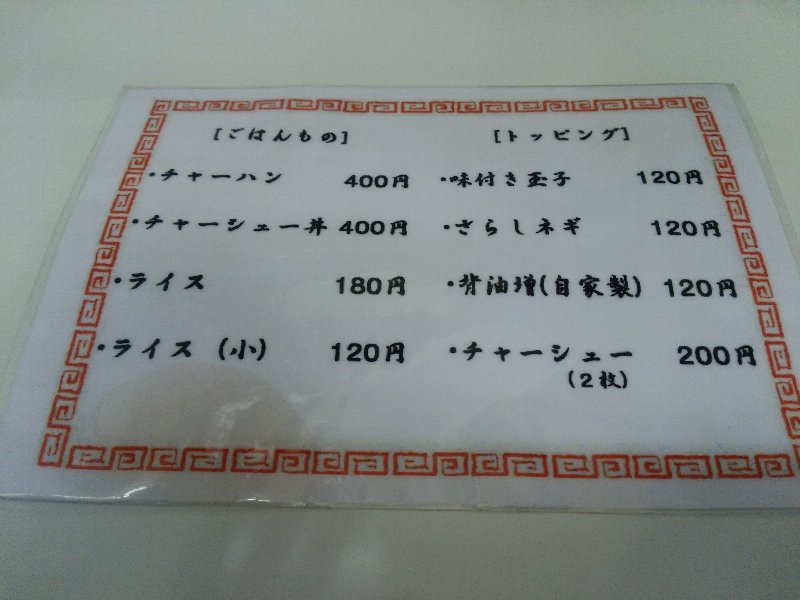 [ごはんもの]
・チャーハン 400円
・チャーシュー丼 400円
・ライス 180円
・ライス (小) 120円
[トッピング]
・味付き玉子 120円
・さらしネギ 120円
・背油増(自家製) 120円
・チャーシュー 200円
(2枚)